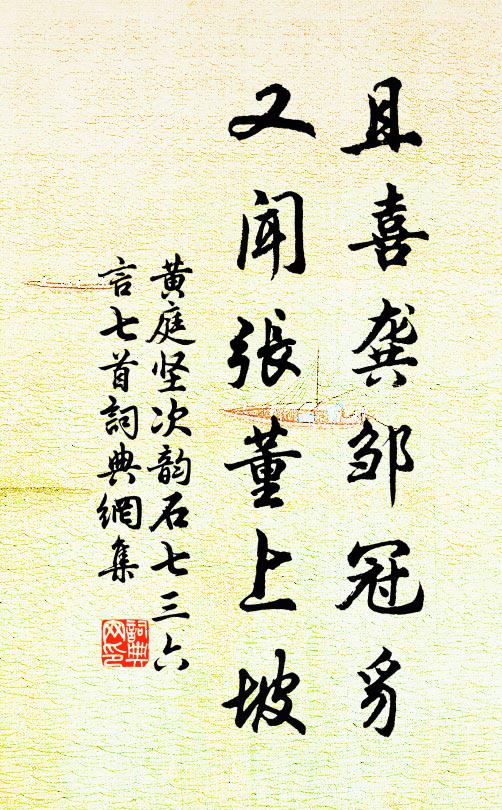 且喜龚邹冠豸
又闻張董上坡
黄庭坚次韵石七三六
言七首詞典網集
詞典網印